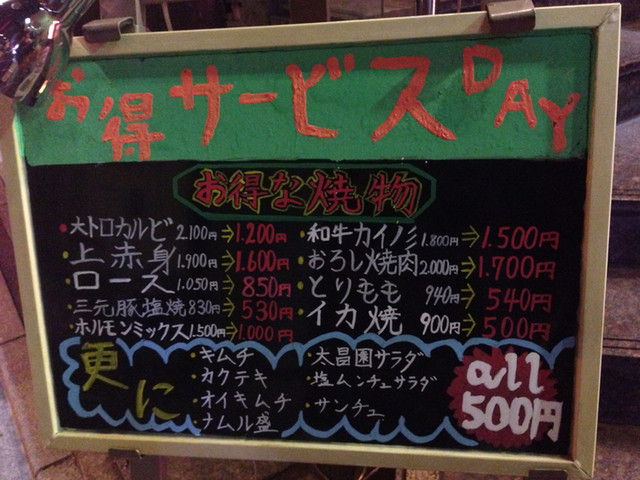 お得サービスDAY
お得な焼物
・大トロカルビ 2.100円⇒1.200円
・上赤身 1.900円⇒1.600円
・ロース 1.050円⇒850円
・三元豚塩焼 830円⇒530円
・ホルモンミックス 1.500円⇒1.000円
・和牛カイノミ 1.800円⇒1.500円
・おろし焼肉 2.000円⇒1.700円
・とりもも 940円⇒540円
・イカ焼 900円⇒500円
更に
・キムチ
・カクテキ
・オイキムチ
・ナムル盛
・大昌園サラダ
・塩ムンチュサラダ
・サンチュ
all
500円